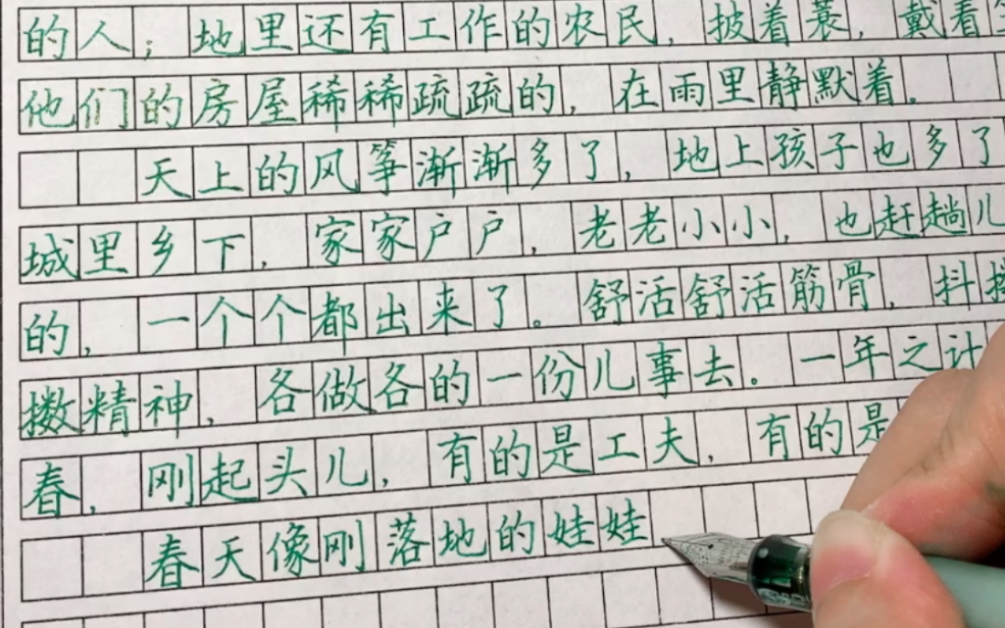 的人；地里还有工作的农民，披着蓑，戴着
他们的房屋稀稀疏疏的，在雨里静默着。
天上的风筝渐渐多了，地上孩子也多了
城里乡下，家家户户，老老小小，也赶趟儿
的，一个个都出来了。舒活舒活筋骨，抖擞
擞精神，各做各的一份儿事去。一年之计
春，刚起头儿，有的是工夫，有的是
春天像刚落地的娃娃